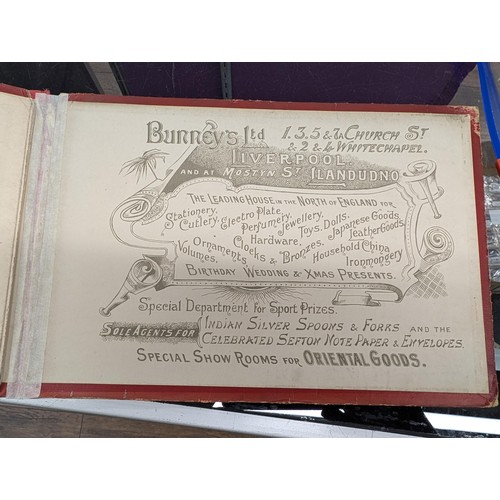 Bunney's Ltd 1.3.5 & 7A Church St
& 2 & 4 Whitechapel.
Liverpool
and at Mostyn St Llandudno
The Leading House in the North of England for
Stationery, Electro Plate, Jewellery, Toys, Dolls, Japanese Goods,
Cutlery, Perfumery, Hardware, Leather Goods,
Volumes, Ornaments, Clocks & Bronzes, Household China
Ironmongery
Birthday Wedding & Xmas Presents.
Special Department for Sport Prizes.
Sole Agents for Indian Silver Spoons & Forks and the
Celebrated Sefton Note Paper & Envelopes.
Special Show Rooms for Oriental Goods.